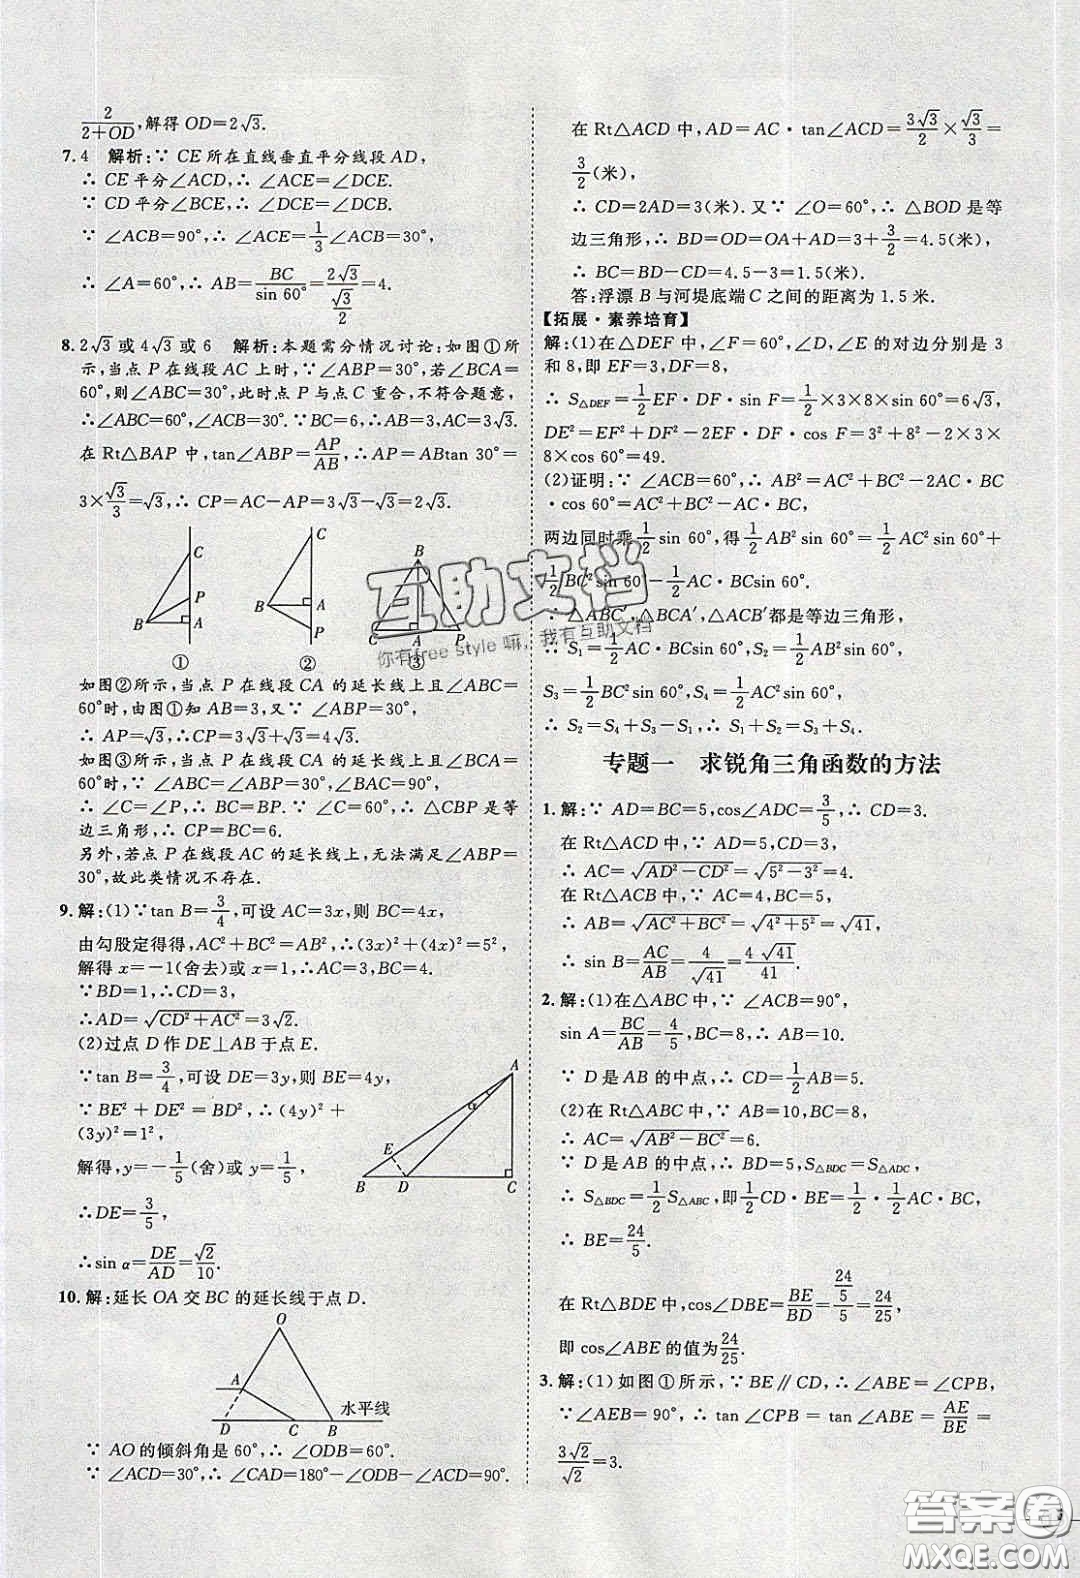 2/(2+OD),解得 OD=2√3.
7. 4　解析:∵ CE 所在直线垂直平分线段 AD,
∴ CE 平分∠ACD,∴ ∠ACE=∠DCE.
∵ CD 平分∠BCE,∴ ∠DCE=∠DCB.
∵ ∠ACB=90°,∴ ∠ACE=1/3∠ACB=30°,
∴ ∠A=60°,∴ AB=BC/sin 60°=2√3/(√3/2)=4.
8. 2√3 或 4√3 或 6　解析:本题需分情况讨论:如图①所
示,当点 P 在线段 AC 上时,∵∠ABP=30°,若∠BCA=
60°,则∠ABC=30°,此时点 P 与点 C 重合,不符合题意,
∴∠ABC=60°,∠BCA=30°.∵BC=6,∴AB=3,AC=3√3.
在 Rt△BAP 中,tan∠ABP=AP/AB,∴AP=ABtan 30°=
3×√3/3=√3,∴ CP=AC-AP=3√3-√3=2√3.
C
P
B
A
①
C
B
A
P
②
B
C
A
P
③
如图②所示,当点 P 在线段 CA 的延长线上且∠ABC=
60°时,由图①知 AB=3,又∵ ∠ABP=30°,
∴ AP=√3,∴CP=3√3+√3=4√3.
如图③所示,当点 P 在线段 CA 的延长线上且∠BCA=
60°时,∠ABC=30°,∵ ∠ABP=30°,∴ ∠PBC=60°,
∴ ∠C=∠P=∠PBC=60°,∴ △CBP 是等
边三角形,∴ CP=BC=6.
另外,若点 P 在线段 AC 的延长线上,无法满足∠ABP=
30°,故此类情况不存在.
9. 解:(1)∵tan B=3/4,可设 AC=3x,则 BC=4x,
由勾股定得得,AC²+BC²=AB²,∴(3x)²+(4x)²=5²,
解得 x=-1(舍去)或 x=1,∴AC=3,BC=4.
∵BD=1,∴CD=3,
∴AD=√(CD²+AC²)=3√2.
(2)过点 D 作 DE⊥AB 于点 E.
∵tan B=3/4,可设 DE=3y,则 BE=4y,
∵BE²+DE²=BD²,∴(4y)²+
(3y)²=1²,
解得,y=-1/5(舍)或 y=1/5,
∴DE=3/5,
∴sin α=DE/AD=√2/10.
A
α
E
B
D
C
10. 解:延长 OA 交 BC 的延长线于点 D.
O
A
水平线
D
C
B
∵ AO 的倾斜角是 60°,∴ ∠ODB=60°.
∵ ∠ACD=30°,∴ ∠CAD=180°-∠ODB-∠ACD=90°.
在 Rt△ACD 中,AD=AC·tan∠ACD=3√3/2×√3/3=
3/2(米),
∴ CD=2AD=3(米).又∵ ∠O=60°,∴ △BOD 是等
边三角形,∴ BD=OD=OA+AD=3+3/2=4.5(米),
∴ BC=BD-CD=4.5-3=1.5(米).
答:浮漂 B 与河堤底端 C 之间的距离为 1.5 米.
【拓展·素养培育】
解:(1)在△DEF 中,∠F=60°,∠D,∠E 的对边分别是 3
和 8,即 EF=3,DF=8,
∴ S△DEF=1/2EF·DF·sin F=1/2×3×8×sin 60°=6√3,
DE²=EF²+DF²-2EF·DF·cos F=3²+8²-2×3×
8×cos 60°=49.
(2)证明:∵ ∠ACB=60°,∴ AB²=AC²+BC²-2AC·BC
·cos 60°=AC²+BC²-AC·BC,
两边同时乘1/2sin 60°,得1/2AB²sin 60°=1/2AC²sin 60°+
1/2BC²sin 60-1/2AC·BCsin 60°,
∵ △ABC′,△BCA′,△ACB′都是等边三角形,
∴ S₁=1/2AC·BCsin 60°,S₂=1/2AB²sin 60°,
S₃=1/2BC²sin 60°,S₄=1/2AC²sin 60°,
∴ S₂=S₄+S₃-S₁,∴ S₁+S₂=S₃+S₄.
专题一　求锐角三角函数的方法
1. 解:∵ AD=BC=5,cos∠ADC=3/5,∴ CD=3.
在 Rt△ACD 中,∵ AD=5,CD=3,
∴ AC=√(AD²-CD²)=√(5²-3²)=4.
在 Rt△ACB 中,∵ AC=4,BC=5,
∴ AB=√(AC²+BC²)=√(4²+5²)=√41,
∴ sin B=AC/AB=4/√41=4√41/41.
2. 解:(1)在△ABC 中,∵ ∠ACB=90°,
sin A=BC/AB=4/5,BC=8,∴ AB=10.
∵ D 是 AB 的中点,∴ CD=1/2AB=5.
(2)在 Rt△ABC 中,∵ AB=10,BC=8,
∴ AC=√(AB²-BC²)=6.
∵ D 是 AB 的中点,∴ BD=5,S△BDC=S△ADC,
∴ S△BDC=1/2S△ABC,即1/2CD·BE=1/2·1/2AC·BC,
∴ BE=24/5.
在 Rt△BDE 中,cos∠DBE=BE/BD=(24/5)/5=24/25,
即 cos∠ABE 的值为24/25.
3. 解:(1)如图①所示,∵ BE∥CD,∴ ∠ABE=∠CPB,
∵ ∠AEB=90°,∴ tan ∠CPB=tan ∠ABE=AE/BE=
3√2/√2=3.
互助文档
你有free style 嘛,我有互助文档
答案圈
MXQE.COM